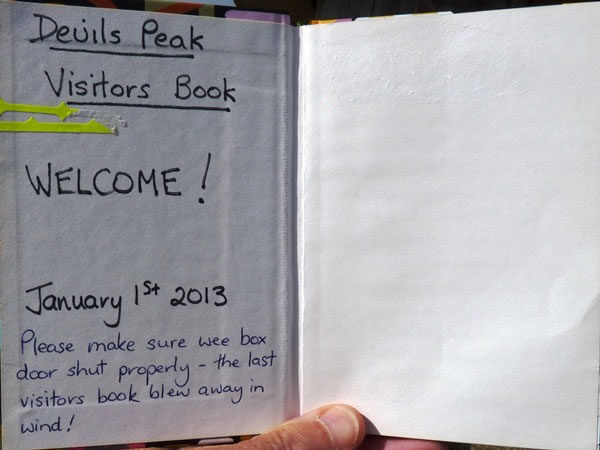 Devils Peak
Visitors Book
WELCOME!
January 1st 2013
Please make sure wee box
door shut properly - the last
visitors book blew away in
wind!